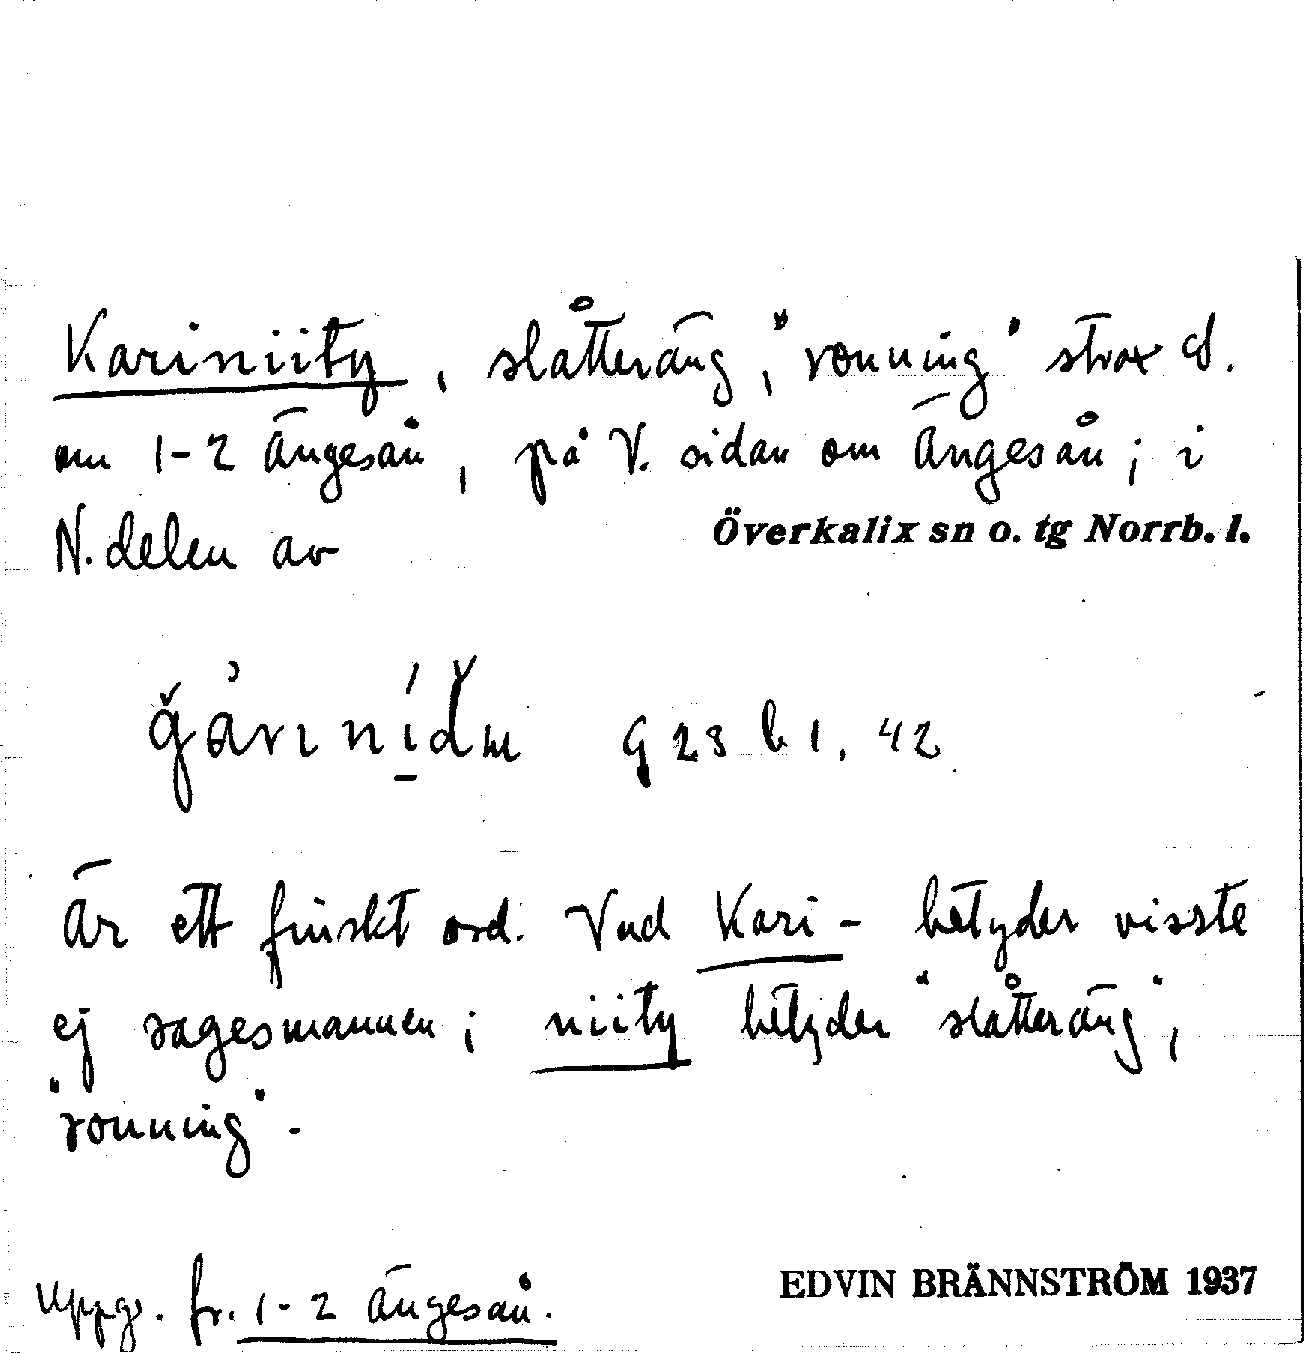 Kariniity, slåtteräng, "rönning" strax S.
om 1-2 Ängesån, på V. sidan om Ängesån; i
N. delen av
Överkalix sn o. tg Norrb. l.
G 23 b 1. 42
Är ett finskt ord. Vad Kari- betyder visste
ej sagesmannen; niity betyder "slåtteräng",
"rönning".
Uppg. fr. 1-2 Ängesån.
EDVIN BRÄNNSTRÖM 1937